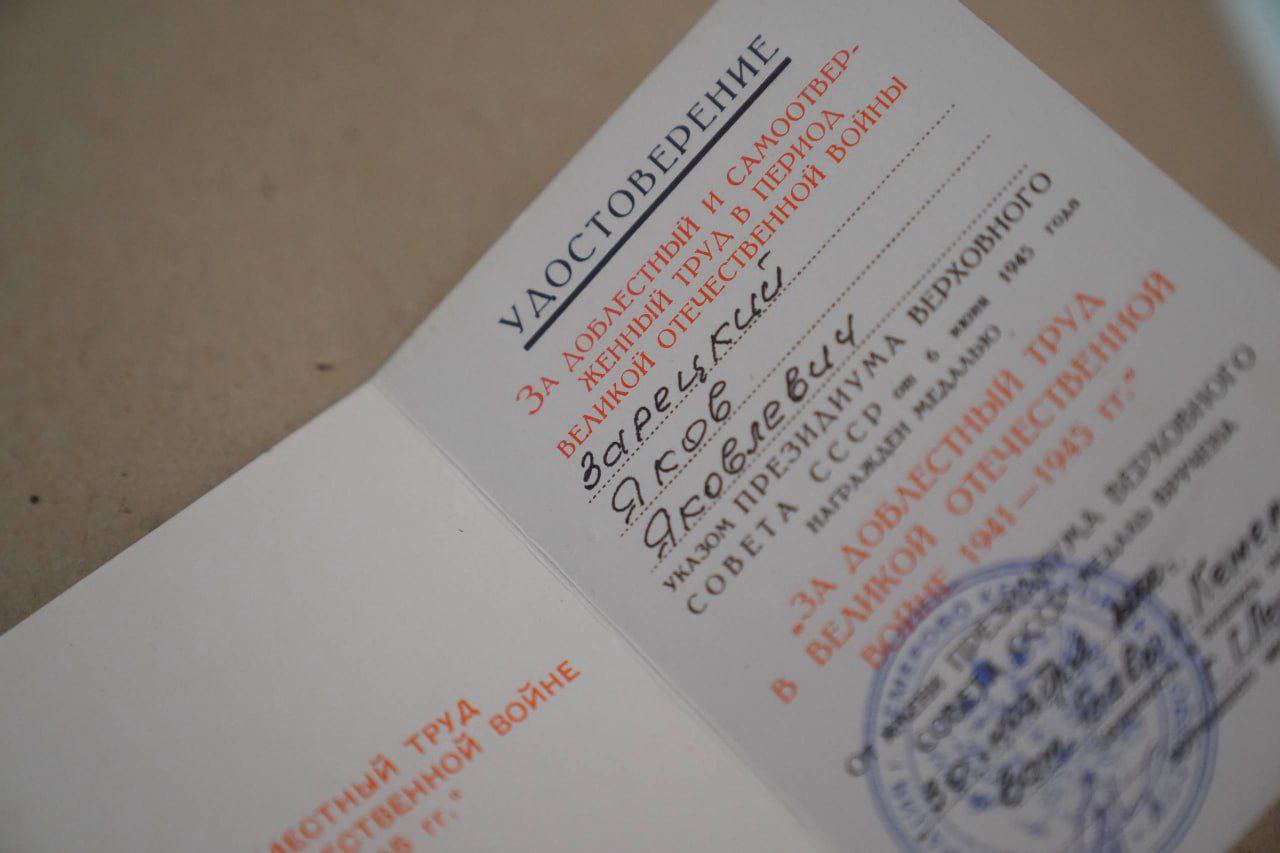 УДОСТОВЕРЕНИЕ
ЗА ДОБЛЕСТНЫЙ И САМООТВЕР-
ЖЕННЫЙ ТРУД В ПЕРИОД
ВЕЛИКОЙ ОТЕЧЕСТВЕННОЙ ВОЙНЫ
Зарецкий
Яков
Яковлевич
УКАЗОМ ПРЕЗИДИУМА ВЕРХОВНОГО
СОВЕТА СССР от 6 июня 1945 года
НАГРАЖДЕН МЕДАЛЬЮ
„ЗА ДОБЛЕСТНЫЙ ТРУД
В ВЕЛИКОЙ ОТЕЧЕСТВЕННОЙ
ВОЙНЕ 1941—1945 гг.“
От имени ПРЕЗИДИУМА ВЕРХОВНОГО
СОВЕТА СССР МЕДАЛЬ ВРУЧЕНА
ЕСТНЫЙ ТРУД
ЕСТВЕННОЙ ВОЙНЕ
гг.“